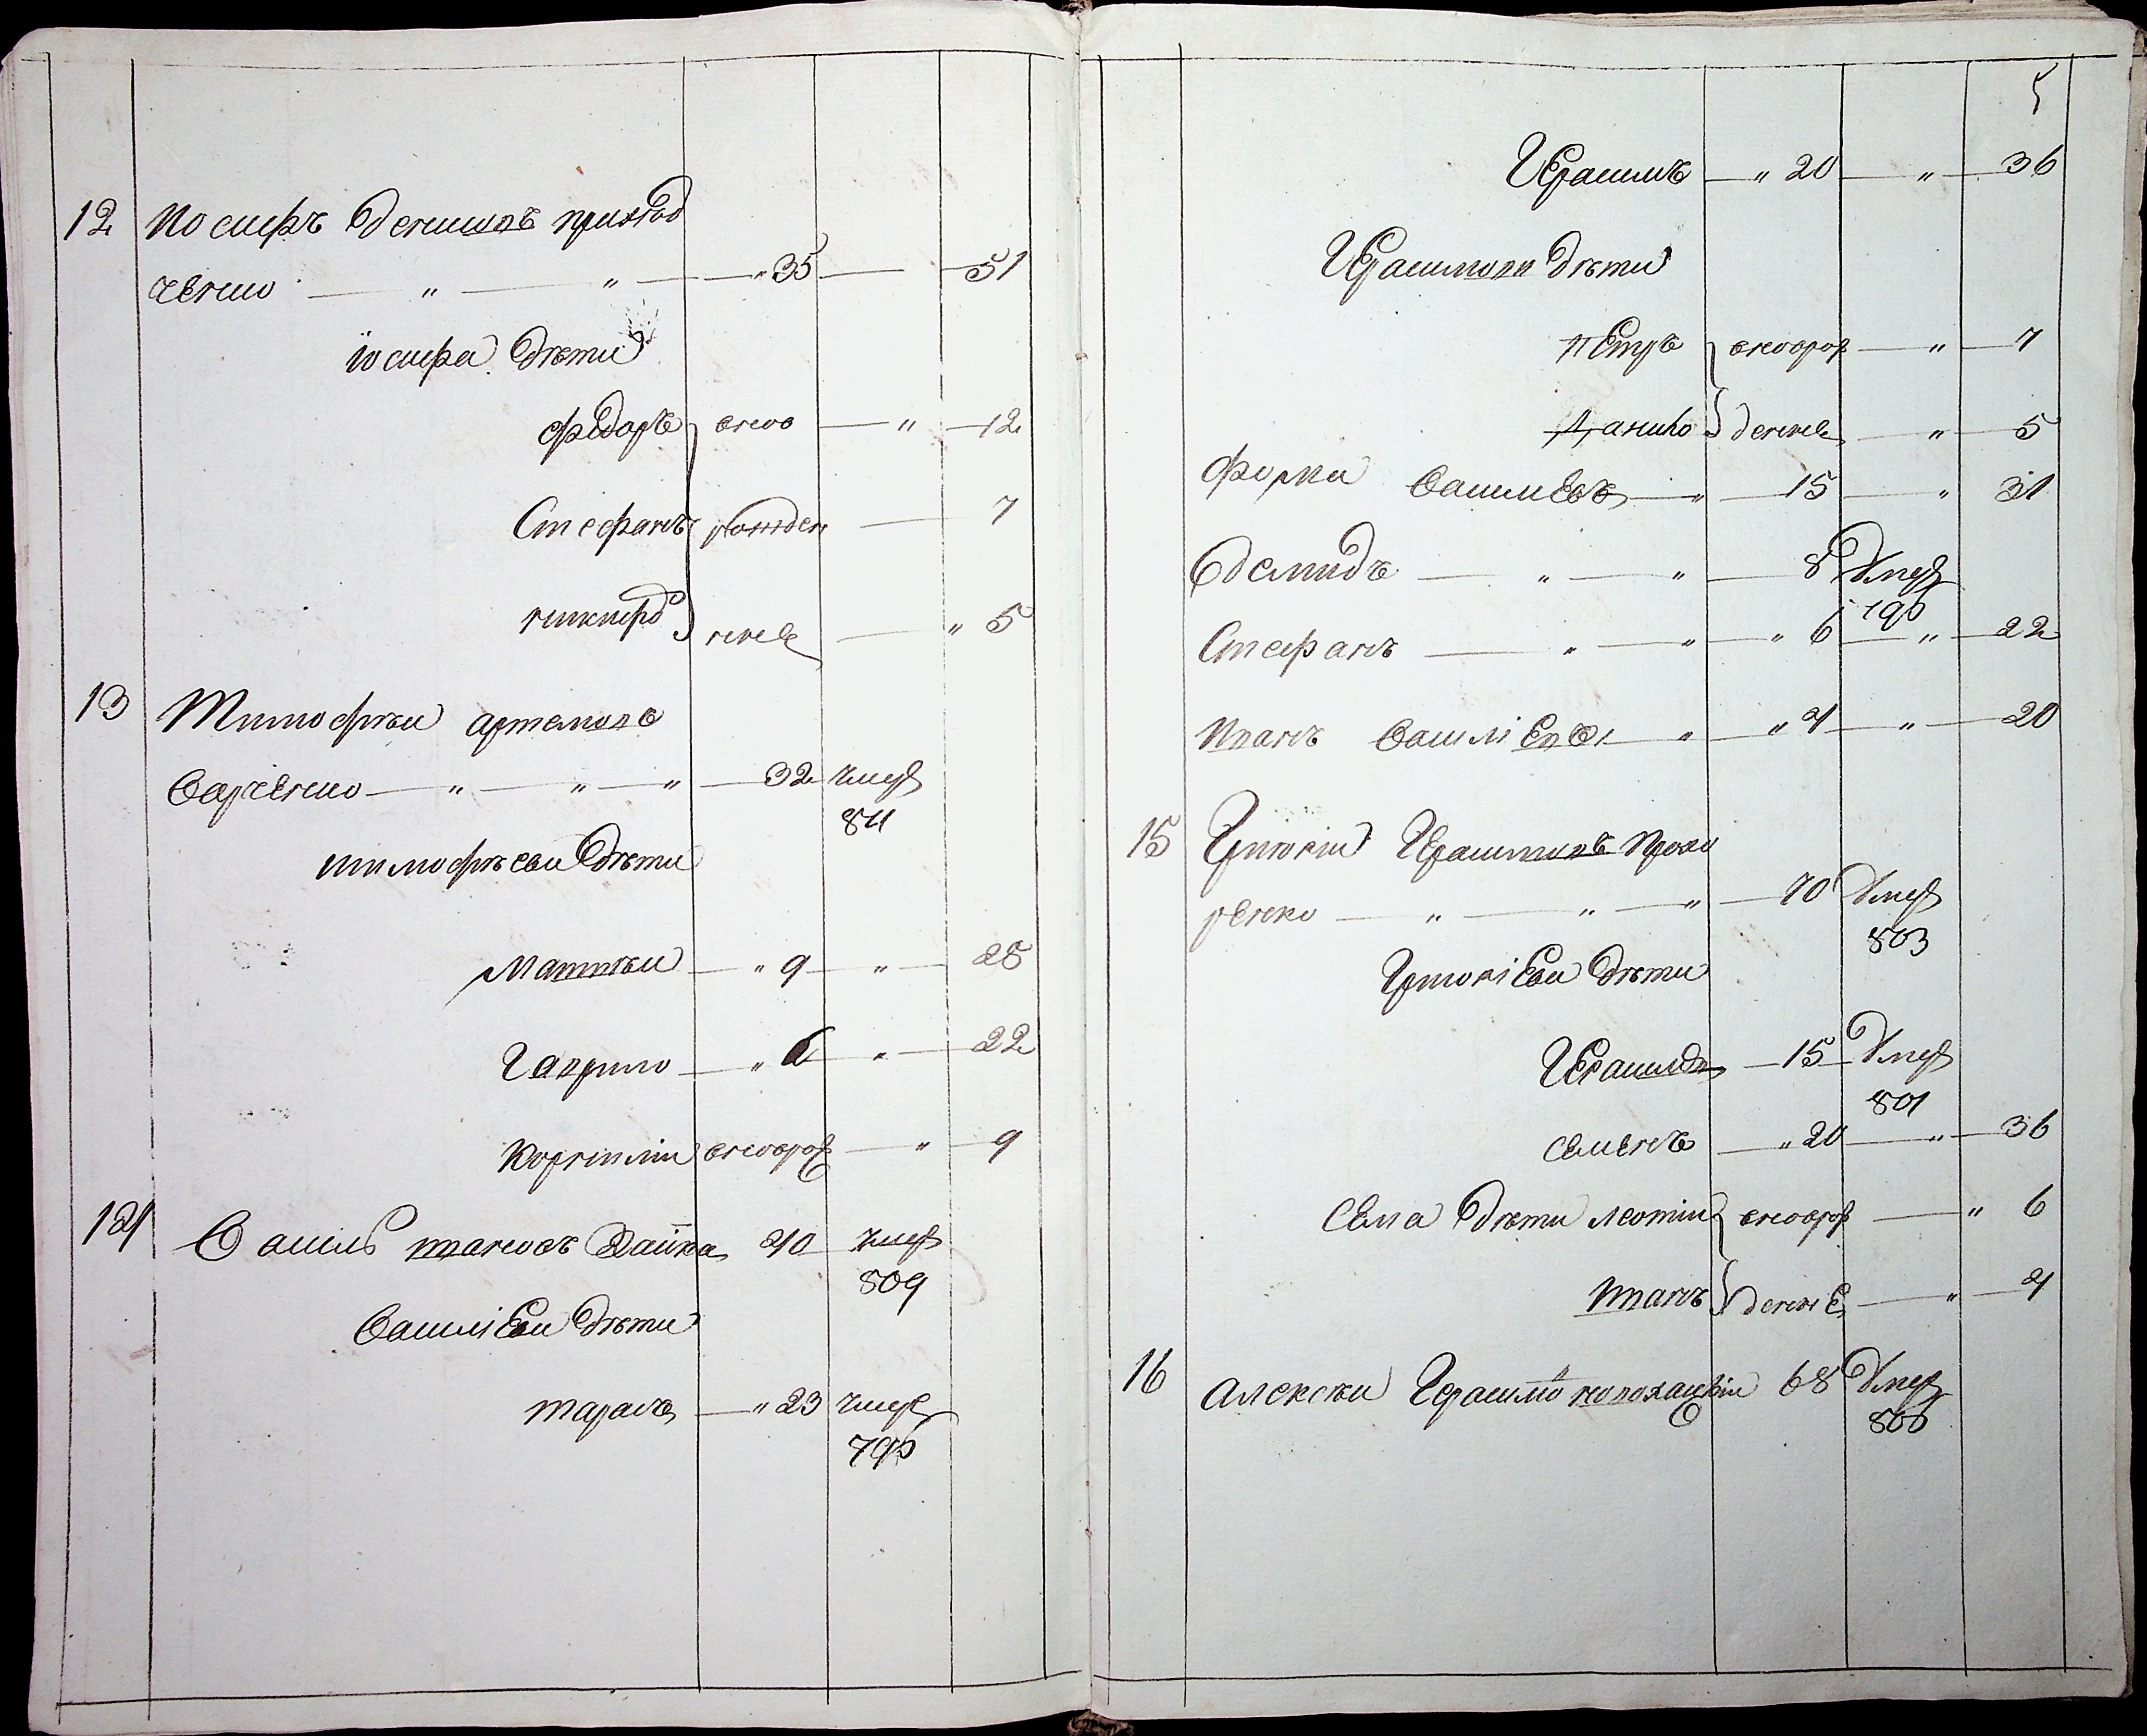 12 Иосифъ Денисовъ приход
ченко " " " 35 51
Иосифа дѣти
Федоръ вново " 12
Стефанъ рожден 7
никифо ные " 5
13 Тимофѣи Артемовъ
Варченко " " " 32 умер
811
тимофѣеви дѣти
Матвѣи " 9 " 25
Гаврило " 6 " 22
Корнилии вновро " 9
14 Василь Иванов 40 умер
809
Василіеви дѣти
Тарасъ " 23 умер
796
5
Герасимъ " 20 " 36
Герасимови дѣти
Петръ вновро " 7
Данило денные " 5
Фома Васильевъ " 15 " 31
Демидъ " " 8 Умер
796
Стефанъ " " " 6 " 22
Иванъ Василіевъ " " 4 " 20
15 Григорій Герасимовъ Прохо
ренко " " " 70 Умер
803
Григоріеви дѣти
Герасимъ 15 Умер
801
Семенъ " 20 " 36
Сема дѣти леонтии вновро " 6
Иванъ денные " 4
16 Алексѣи Герасимо 68 Умер
806